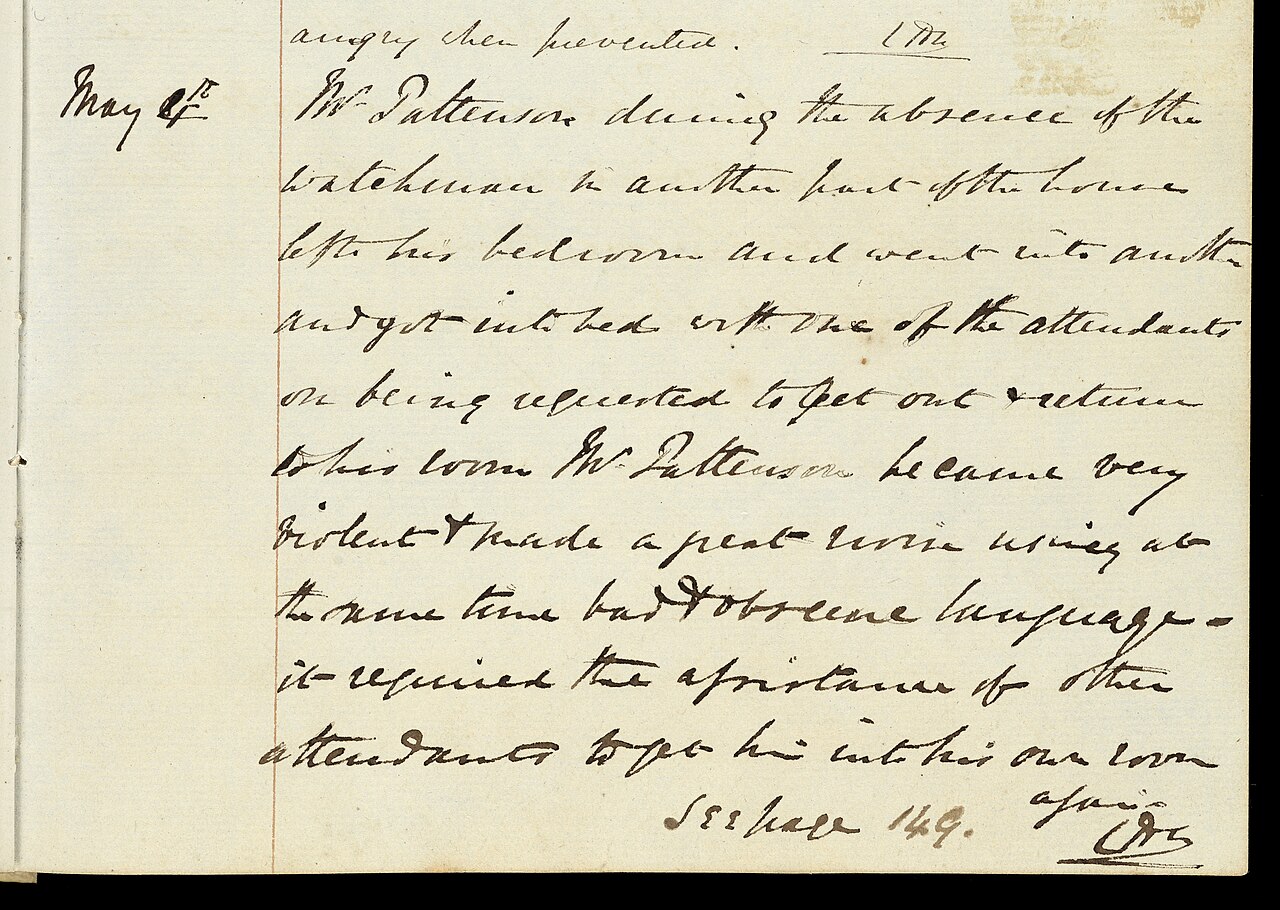 angry when prevented.
May
Mr Pattenson during the absence of the
watchman in another part of the house
left his bedroom and went into another
and got into bed with one of the attendants
on being requested to get out & return
to his room Mr Pattenson became very
violent & made a great noise using at
the same time bad & obscene language -
it required the assistance of other
attendants to get him into his own room
again
See page 149.